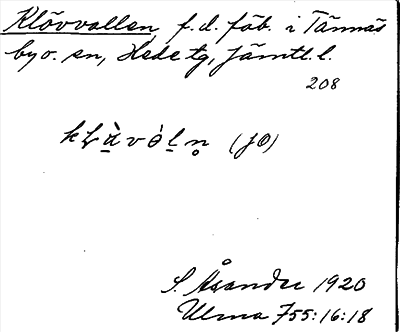 Klövvallen, f.d. fäb. i Tännäs
by o. sn, Hede tg, Jämtl. l.
208
(JÖ)
S. Åsander 1920
Ulma 755:16:18